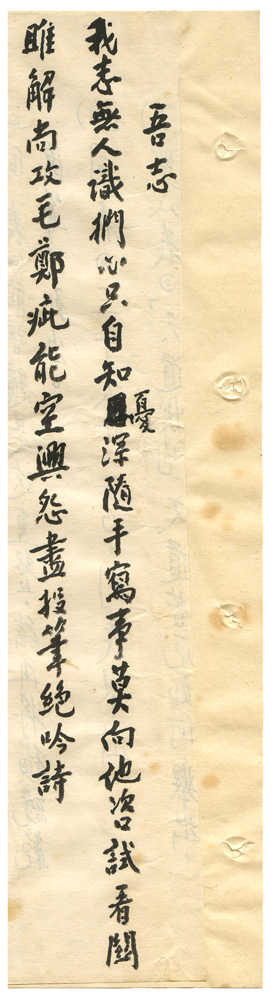 吾志
我志無人識捫心只自知憂深隨手寫事莫向他咨試看關
雎解尚攻毛鄭疵能空興怨盡投筆絕吟詩